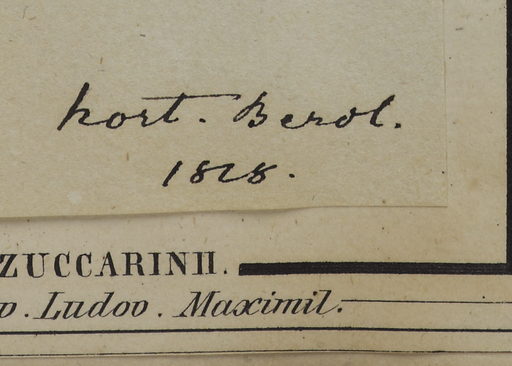 hort. Berol.
1828.
ZUCCARINII.
v. Ludov. Maximil.